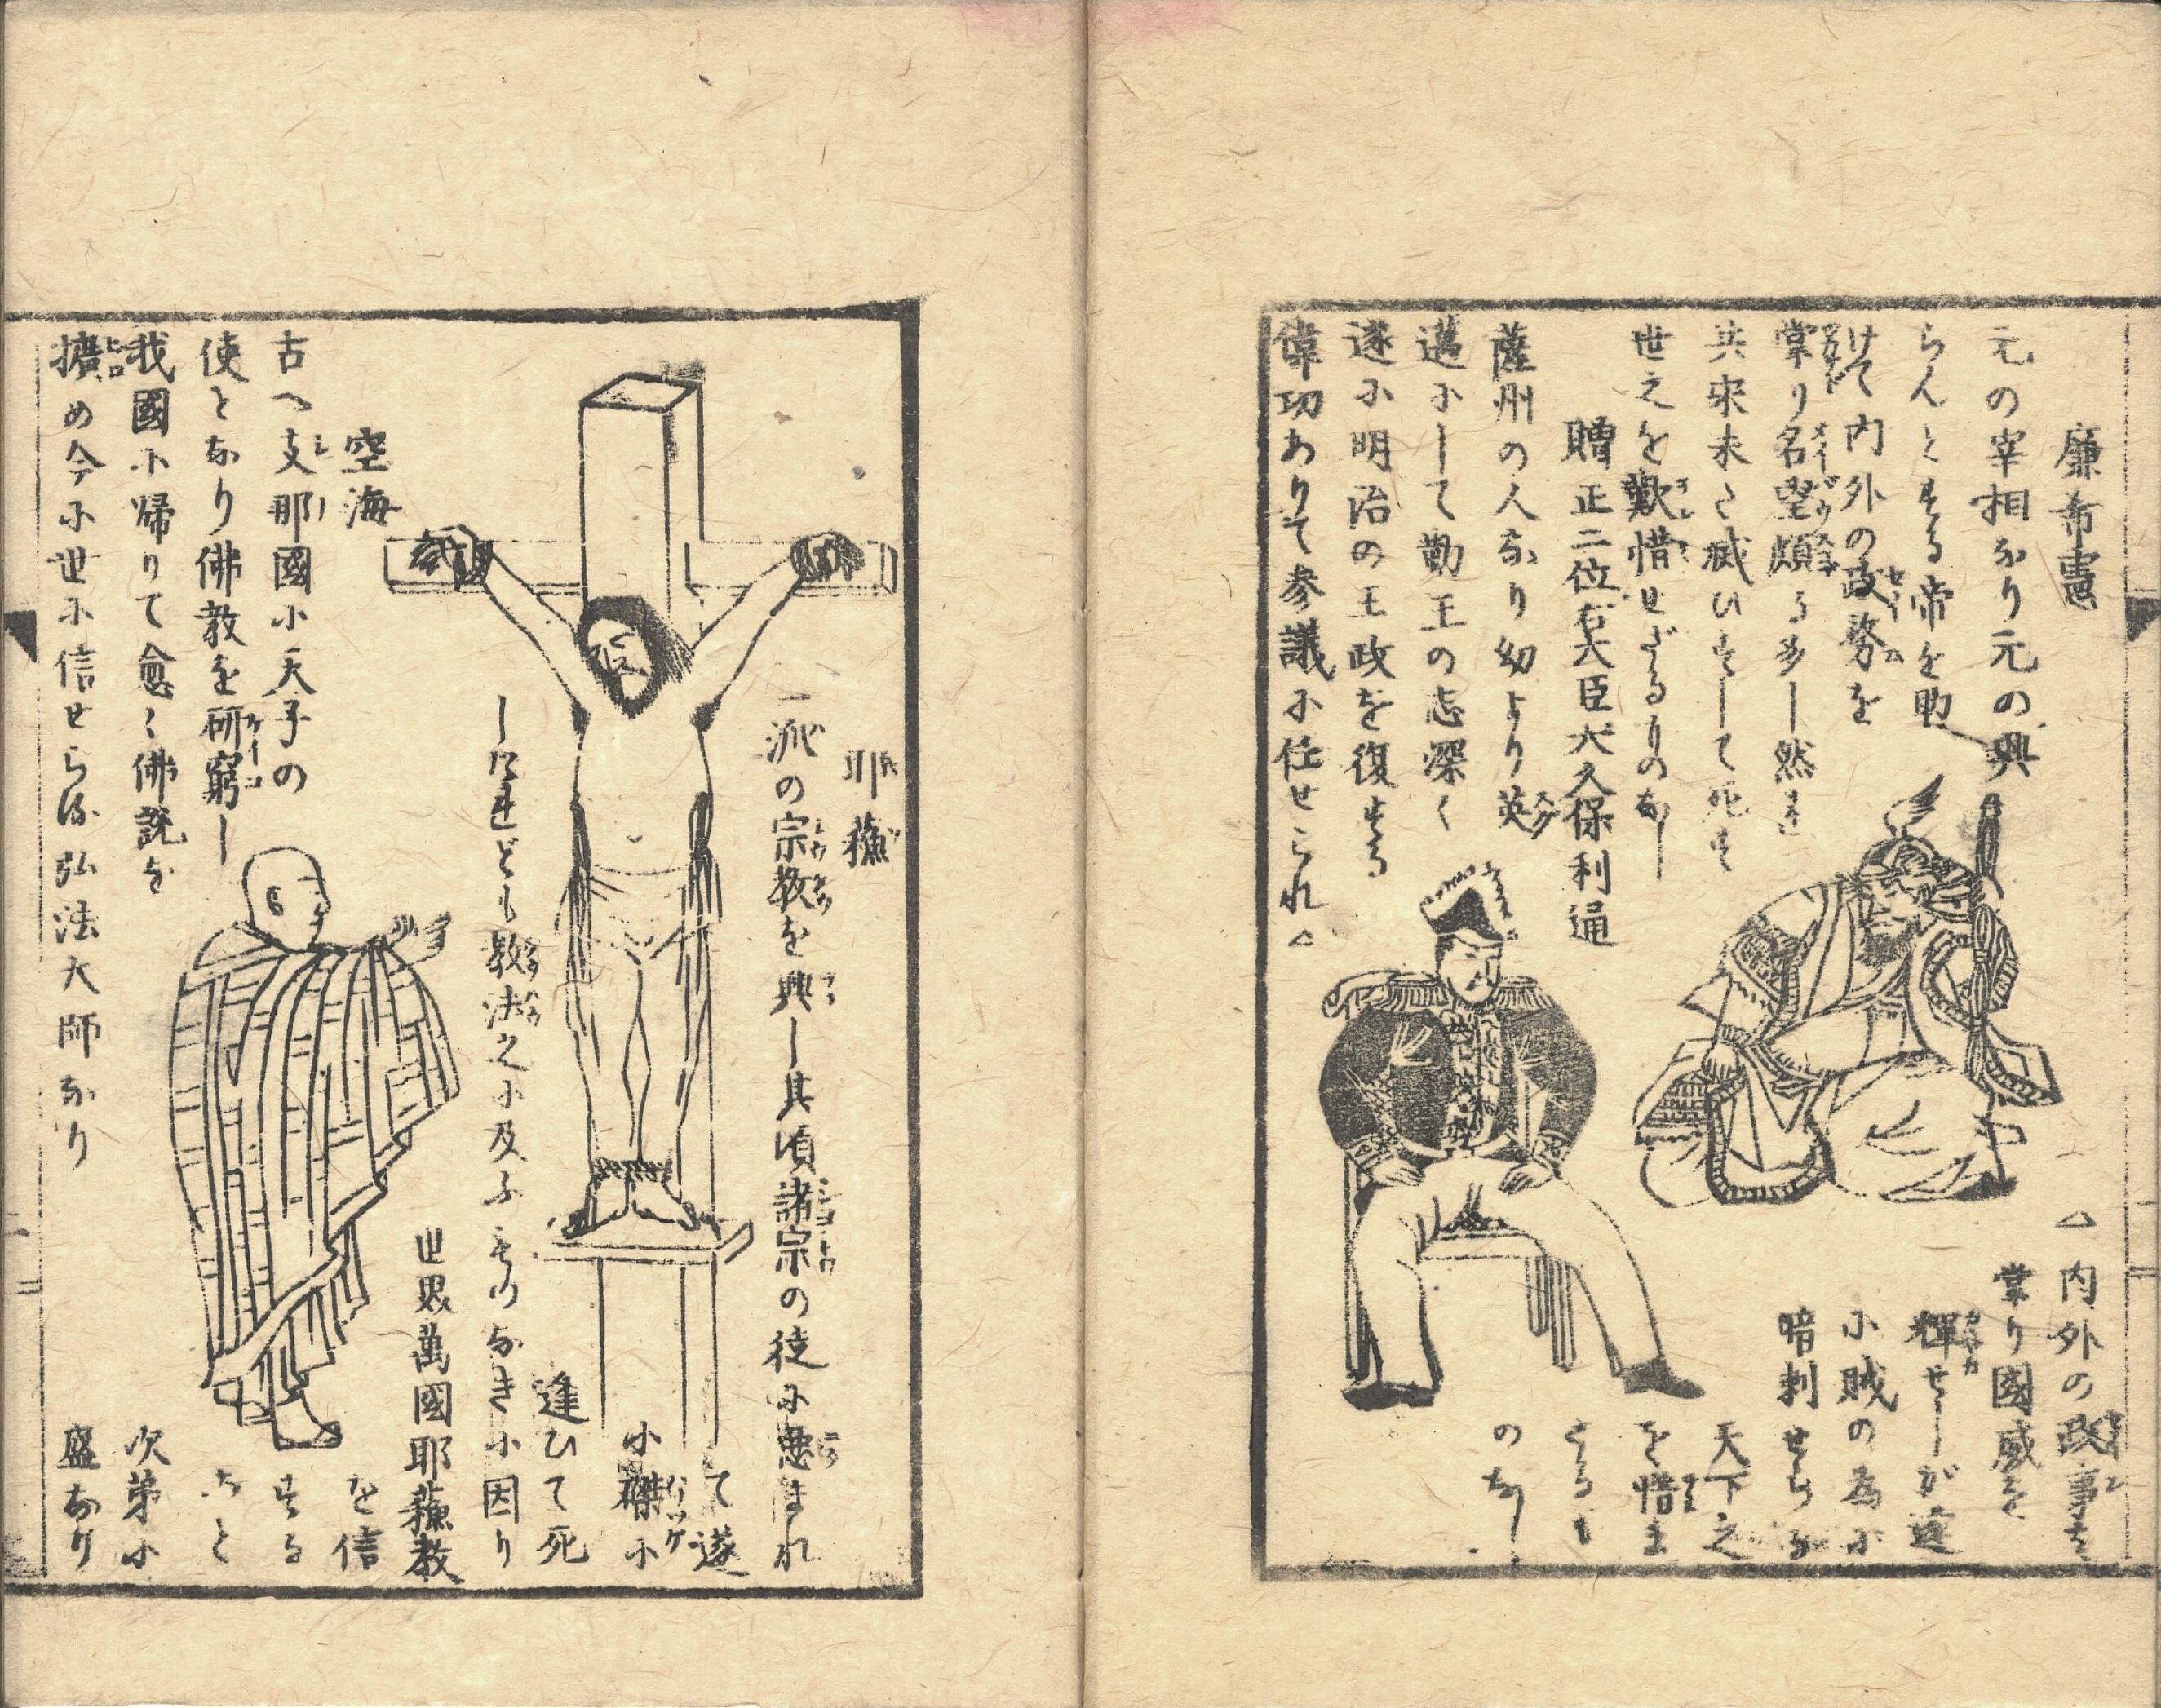 廉希憲
元の宰相なり元の興
らんとする帝を助
けて内外の政務を
掌り名望頗る多し然れ
共宋未た滅ひずして死す
世之を歎惜せざるものなし
贈正二位右大臣大久保利通
薩州の人なり幼より英
邁にして勤王の志深く
遂に明治の王政を復する
偉功ありて参議に任せられ△
△内外の政事を
掌り國威を
輝せしが遂
に賊の為に
暗刺せらる
天下之
を惜ま
ざるも
のなし
耶蘇
一派の宗教を興し其頃諸宗の徒に悪まれ
て遂
に磔に
逢ひて死
しけれども教法之に及ふものなきに因り
世界萬國耶蘇教
を信
する
こと
次第に
盛なり
空海
古へ支那國に天子の
使となり佛教を研窮し
我國に帰りて愈々佛説を
擴め今に世に信せらる弘法大師なり